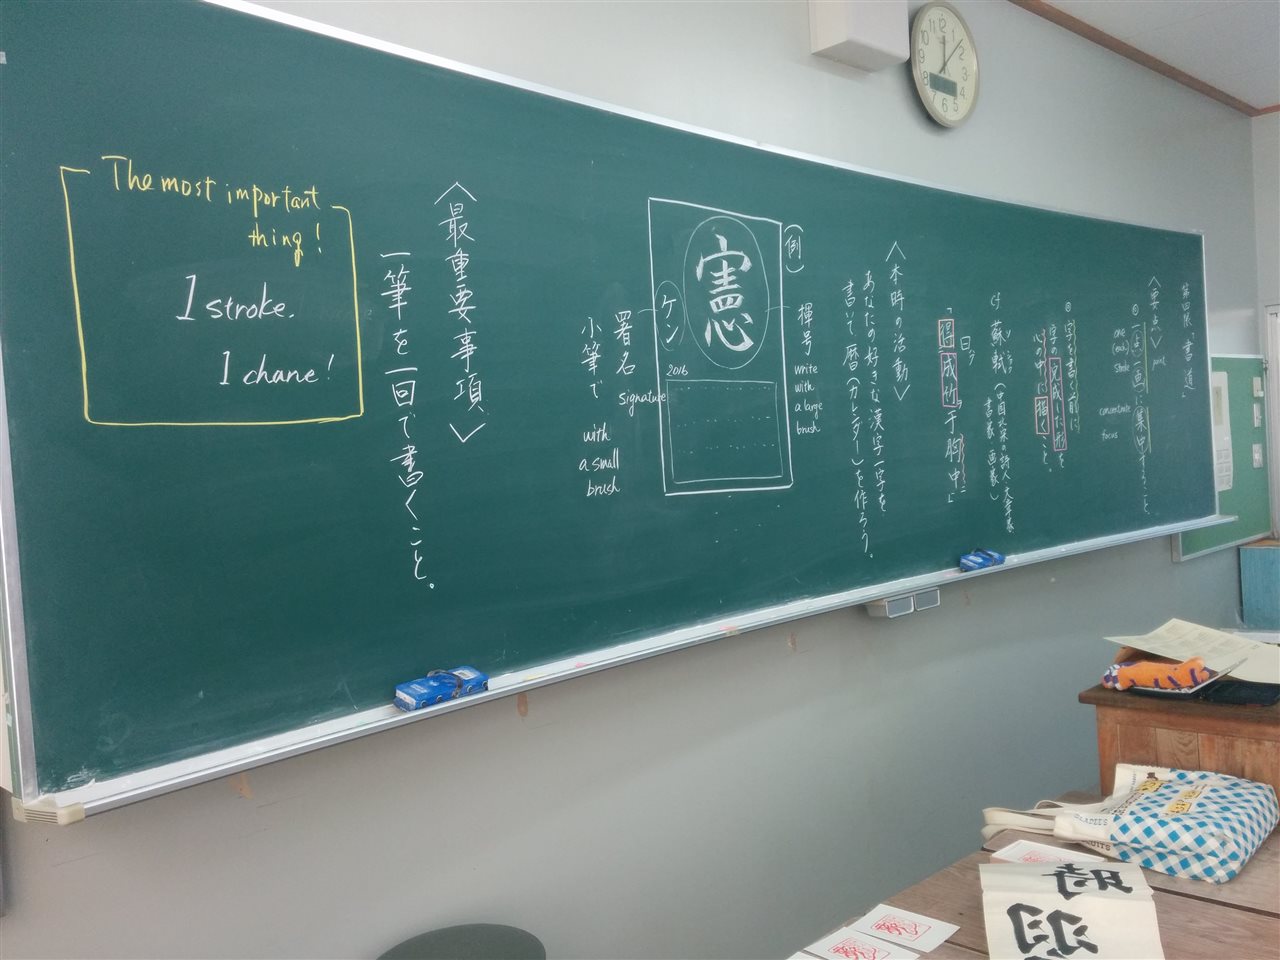 第四限、書道」
〈要点〉
point
one
(each)
stroke
concentrate
focus
字を書く前に
字の完成した形を
心の中に描くこと。
cf 蘇軾(中国北宋の詩人・文章家、
書家・画家)
曰ク
「得成竹于胸中」
〈本時の活動〉
あなたの好きな漢字一字を
書いて暦(カレンダー)を作ろう。
(例)
揮号
write
with
a large
brush
憲
ケン
2016
署名
signature
小筆で
with
a small
brush
〈最重要事項、〉
一筆を一回で書くこと。
The most important
thing!
1 stroke.
1 chane!